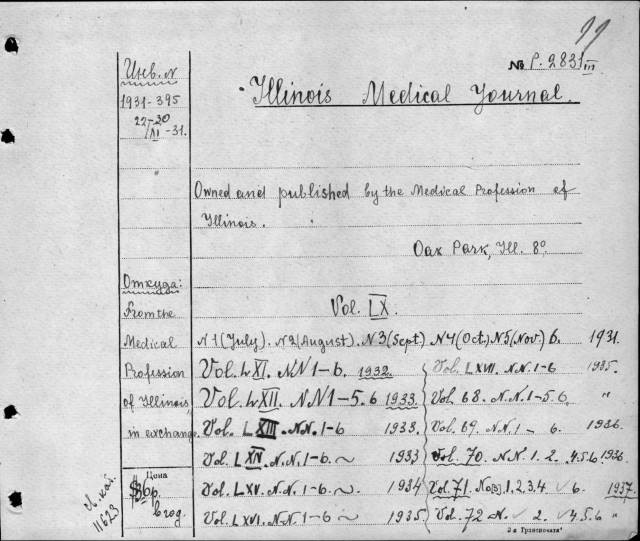 № P. 2831 III
Инв. N
1931-395
22-30
/XI -31.
Illinois Medical Journal.
Owned and published by the Medical Profession of
Illinois.
Oak Park, Ill. 8°
Откуда:
From the
Medical
Profession
of Illinois,
in exchange
Цена
в год.
11623
Vol. LX.
N1(July). N2(August). N3(Sept) N4(Oct.) N5(Nov.) 6. 1931.
Vol. LXI. NN 1-6. 1932.
Vol. LXII. NN 1-5. 6 1933.
Vol. LXIII. N.N. 1-6 1933.
Vol. LXIV. N.N. 1-6. 1933
Vol. LXV. N.N. 1-6. 1934
Vol. LXVI. N.N. 1-6 1935
Vol. LXVII. N.N. 1-6 1935.
Vol. 68. N.N. 1-5. 6. "
Vol. 69. N.N. 1- 6. 1936.
Vol. 70. N.N. 1. 2. 4.5.6 1936
Vol. 71. No[3]. 1, 2, 3, 4. ✓ 6. 1937.
Vol. 72 N. ✓ 2. ✓ 4.5.6 "